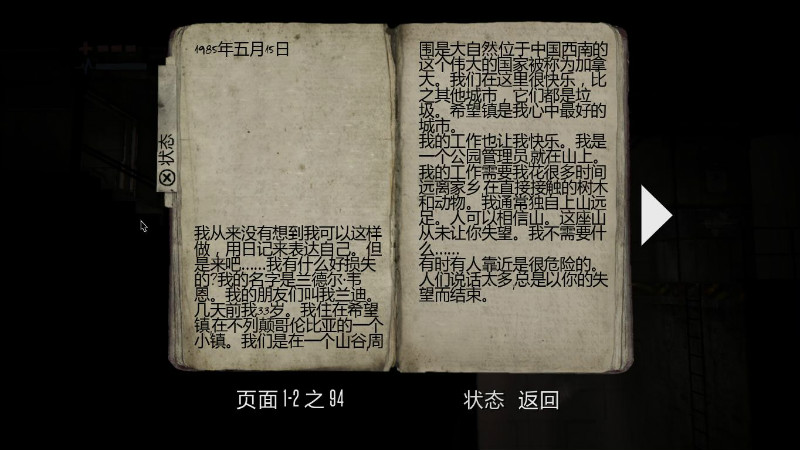 1985年五月15日
我从来没有想到我可以这样
做，用日记来表达自己。但
是来吧……我有什么好损失
的?我的名字是兰德尔·韦
恩。我的朋友们叫我兰迪。
几天前我33岁。我住在希望
镇,在不列颠哥伦比亚的一个
小镇。我们是在一个山谷,周
围是大自然位于中国西南的
这个伟大的国家被称为加拿
大。我们在这里很快乐，比
之其他城市，它们都是垃
圾。希望镇是我心中最好的
城市。
我的工作也让我快乐。我是
一个公园管理员,就在山上。
我的工作需要我花很多时间
远离家乡,在直接接触的树木
和动物。我通常独自上山远
足。人可以相信山。这座山
从未让你失望。我不需要什
么……
有时有人靠近是很危险的。
人们说话太多,总是以你的失
望而结束。
状态
页面 1-2 之 94
状态 返回